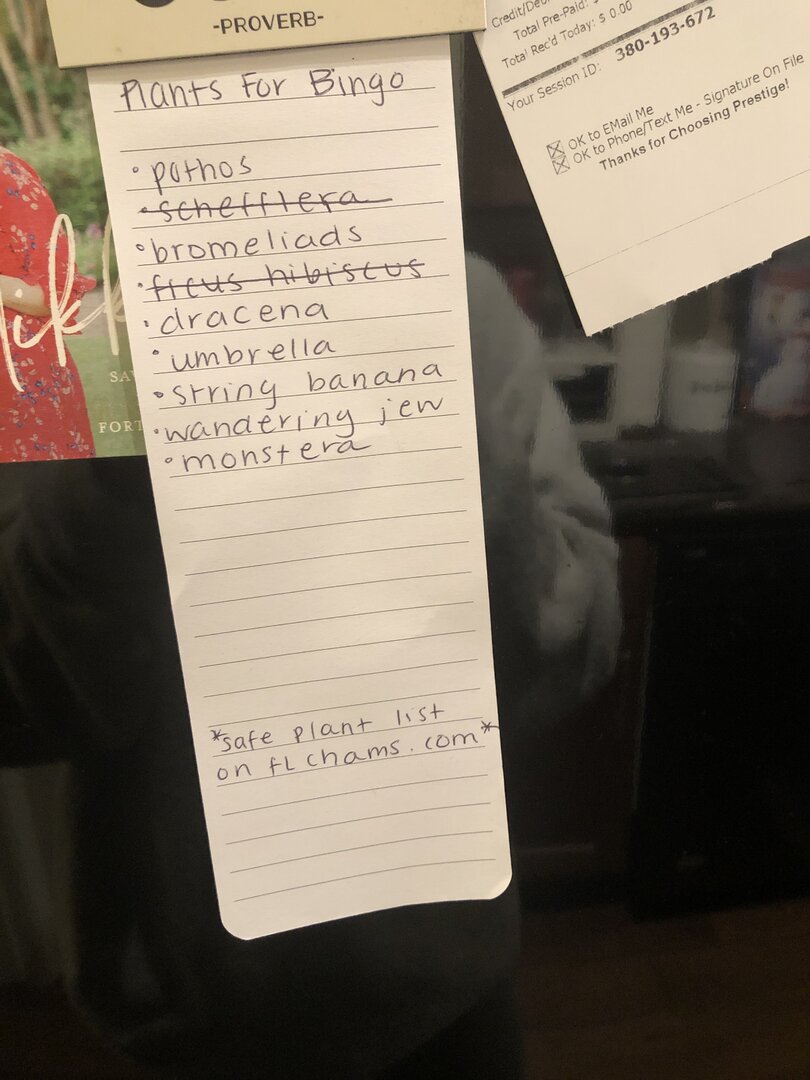 -PROVERB-
Plants For Bingo
• pothos
• schefflera
• bromeliads
• ficus hibiscus
• dracena
• umbrella
• string banana
• wandering jew
• monstera
*safe plant list
on fL chams.com*
Credit/De
Total Pre-Paid: $
Total Rec'd Today: $ 0.00
Your Session ID: 380-193-672
☒ OK to EMail Me
☒ OK to Phone/Text Me - Signature On File
Thanks for Choosing Prestige!
SA
FORT